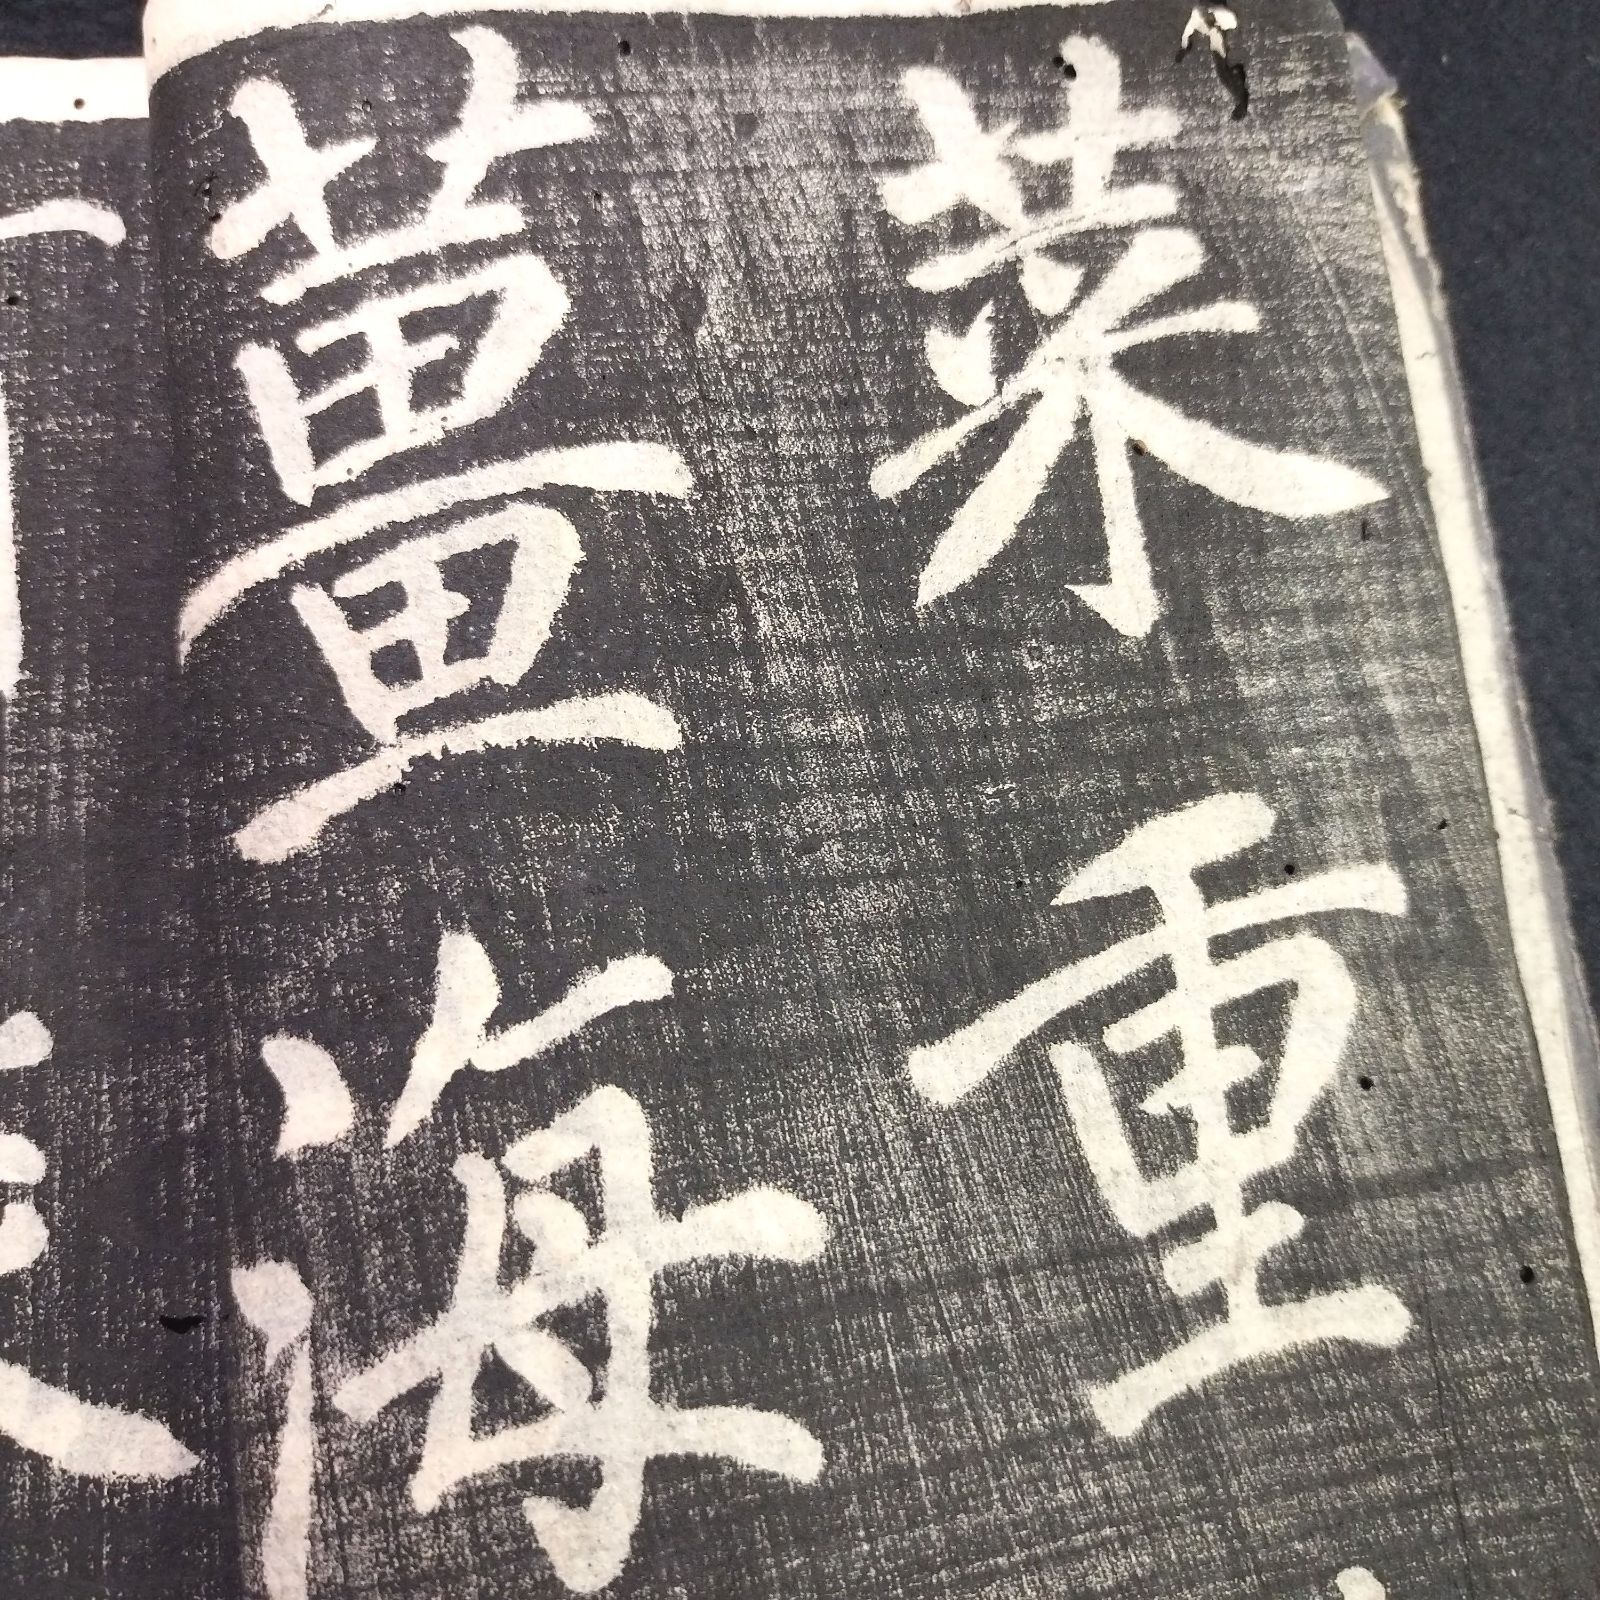 菜重
薑海